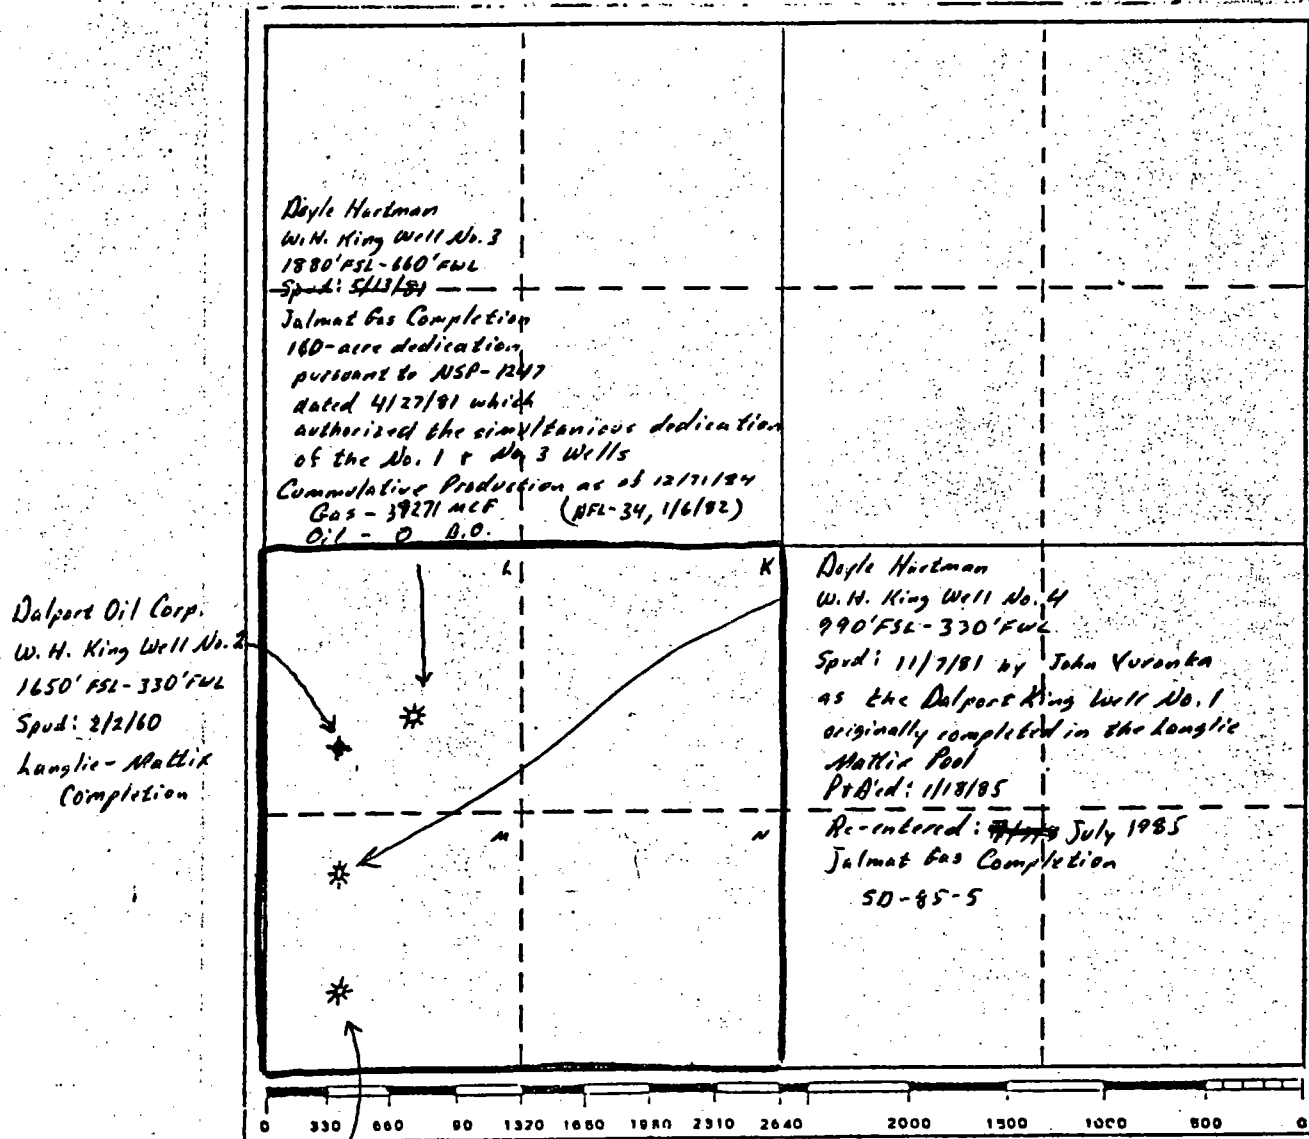 Doyle Hartman
W.H. King Well No. 3
1880' FSL-660' FWL
Spud: 5/13/81
Jalmat Gas Completion
160-acre dedication
pursuant to NSP-1247
dated 4/27/81 which
authorized the simultanious dedication
of the No. 1 & No 3 Wells
Cummulative Production as of 12/31/84
Gas - 39271 MCF (NFL-34, 1/6/82)
Oil - 0 B.O.
L
K
Dalport Oil Corp.
W. H. King Well No. 2
1650' FSL-330' FWL
Spud: 2/2/60
Langlie-Mattix
Completion
Doyle Hartman
W. H. King Well No. 4
990' FSL-330' FWL
Spud: 11/7/81 by John Yuronka
as the Dalport King Well No. 1
originally completed in the Langlie
Mattix Pool
P&A'ed: 1/18/85
Re-entered: July 1985
Jalmat Gas Completion
SD-85-5
M
N
0 330 660 90 1320 1650 1980 2310 2640 2000 1500 1000 500 0